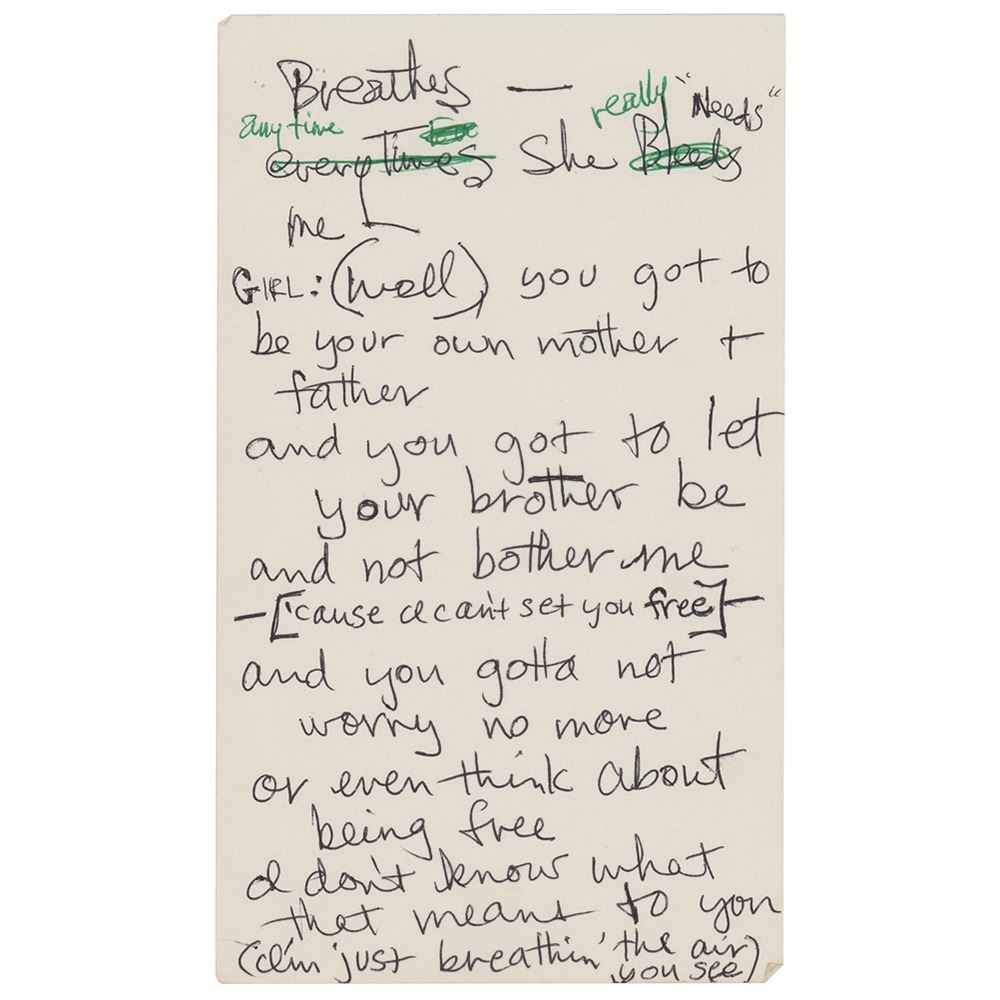 Breathes —
anytime really "Needs"
everytimes She Bleeds
me
GIRL: (well) you got to
be your own mother +
father
and you got to let
your brother be
and not bother me
-['cause I can't set you free]-
and you gotta not
worry no more
or even think about
being free
I don't know what
that means to you
(I'm just breathin' the air
you see)